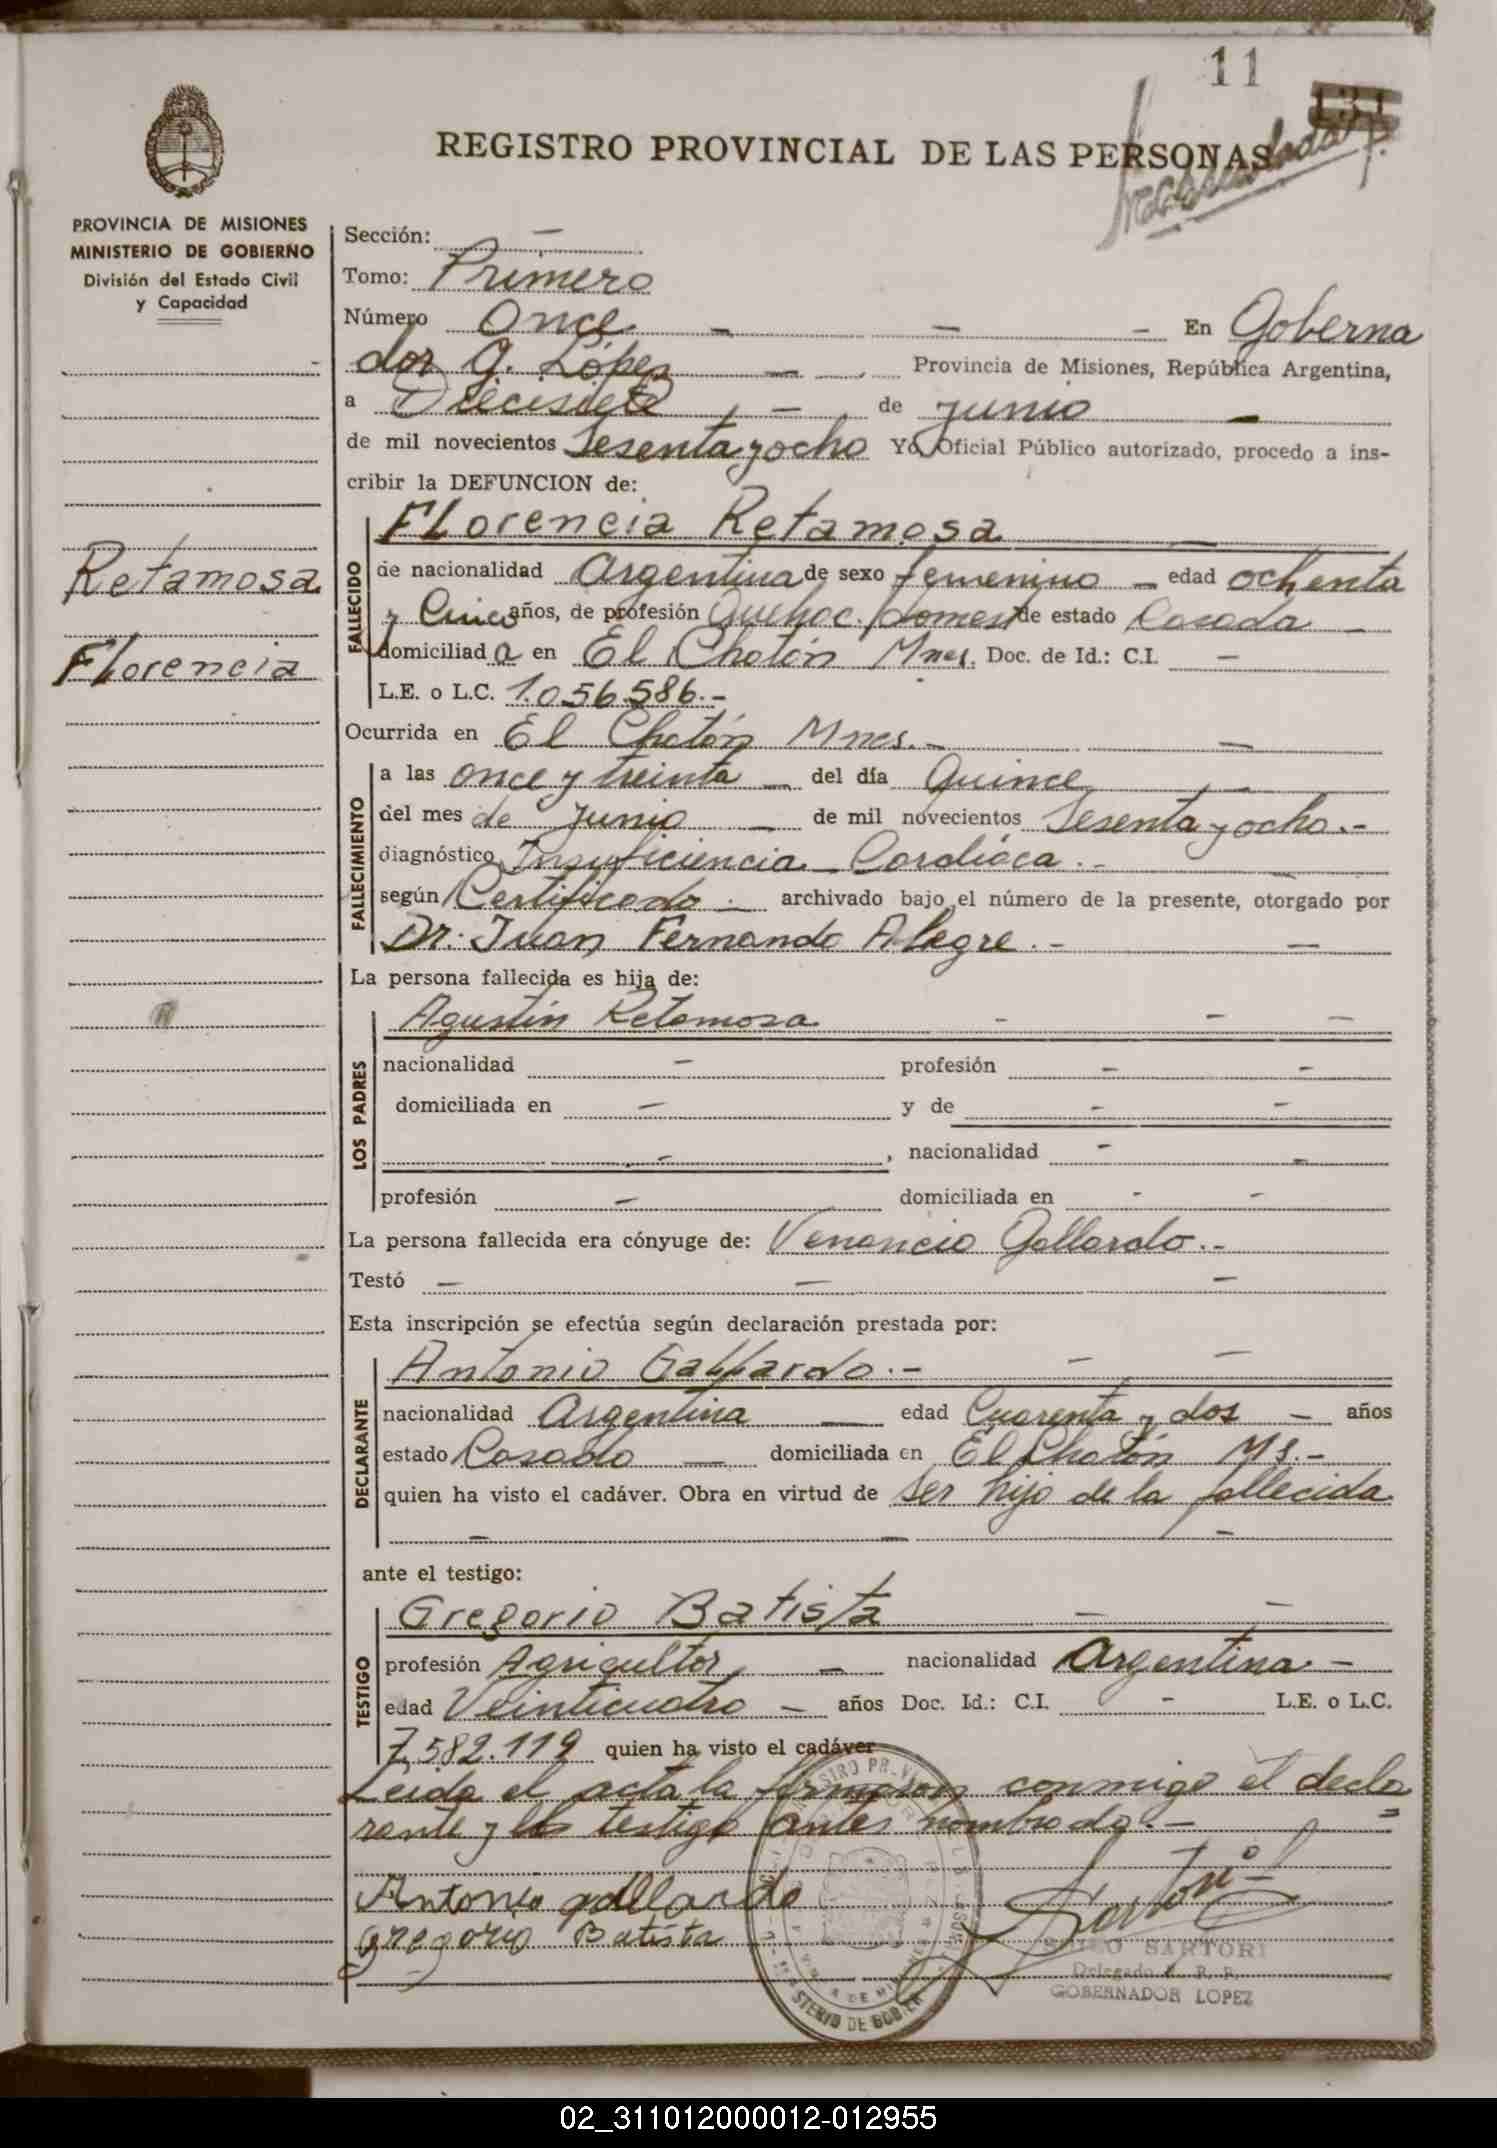 11
131
REGISTRO PROVINCIAL DE LAS PERSONAS
PROVINCIA DE MISIONES
MINISTERIO DE GOBIERNO
División del Estado Civil
y Capacidad
Retamosa
Florencia
Sección: -
Tomo: Primero
Número Once - - - En Goberna
dor G. López - Provincia de Misiones, República Argentina,
a Diecisiete - de junio -
de mil novecientos Sesenta y ocho Yo, Oficial Público autorizado, procedo a ins-
cribir la DEFUNCION de:
FALLECIDO
Florencia Retamosa -
de nacionalidad Argentina de sexo femenino - edad ochenta
y Cinco años, de profesión Quehac. domest de estado Casada -
domiciliada en El Chotón Mnes. Doc. de Id.: C.I. -
L.E. o L.C. 1.056.586.-
Ocurrida en El Chotón Mnes. - -
FALLECIMIENTO
a las once y treinta - del día Quince
del mes de Junio - de mil novecientos Sesenta y ocho.-
diagnóstico Insuficiencia Cardíaca.-
según Certificado - archivado bajo el número de la presente, otorgado por
Dr. Juan Fernando Alegre.- -
La persona fallecida es hija de:
LOS PADRES
Agustín Retamosa - - -
nacionalidad - profesión - -
domiciliada en - y de - -
- , nacionalidad - -
profesión - domiciliada en - -
La persona fallecida era cónyuge de: Venancio Gallardo.-
Testó - - -
Esta inscripción se efectúa según declaración prestada por:
DECLARANTE
Antonio Gallardo.- - -
nacionalidad Argentina - edad Cuarenta y dos - años
estado Casado - domiciliada en El Chotón Ms.-
quien ha visto el cadáver. Obra en virtud de ser hijo de la fallecida
- - -
ante el testigo:
TESTIGO
Gregorio Batista - -
profesión Agricultor - nacionalidad Argentina -
edad Veinticuatro - años Doc. Id.: C.I. - L.E. o L.C.
7.582.119 quien ha visto el cadáver
Leida el acta la firmaron conmigo el decla
rante y el testigo antes nombrado.-
Antonio gallardo
gregorio Batista
SARTORI
Delegado R. P. P.
GOBERNADOR LOPEZ
02_311012000012-012955